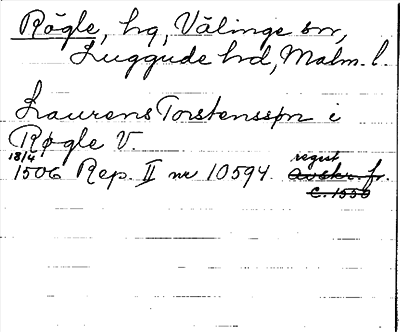 Rögle, hg, Välinge sn,
Luggude hd, Malm. l.
Laurens Torstenssøn i
Røgle V.
18/4
1506 Rep. II nr 10594. regist
Avskr. fr.
C. 1550